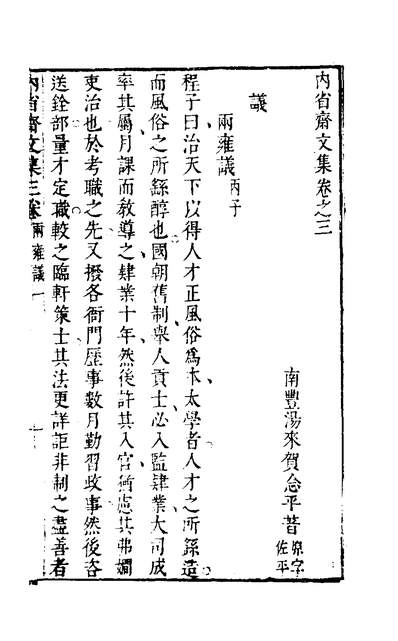 內省齋文集卷之三
南豐湯來賀念平著 原字佐平
議
兩雍議 丙子
程子曰治天下以得人才正風俗爲本太學者人才之所繇造
而風俗之所繇醇也國朝舊制舉人貢士必入監肄業大司成
率其屬月課而敎導之肄業十年然後許其入官猶慮其弗嫺
吏治也於考職之先又撥各衙門歷事數月勤習政事然後咨
送銓部量才定職較之臨軒策士其法更詳詎非制之盡善者
內省齋文集三卷 兩雍議 一